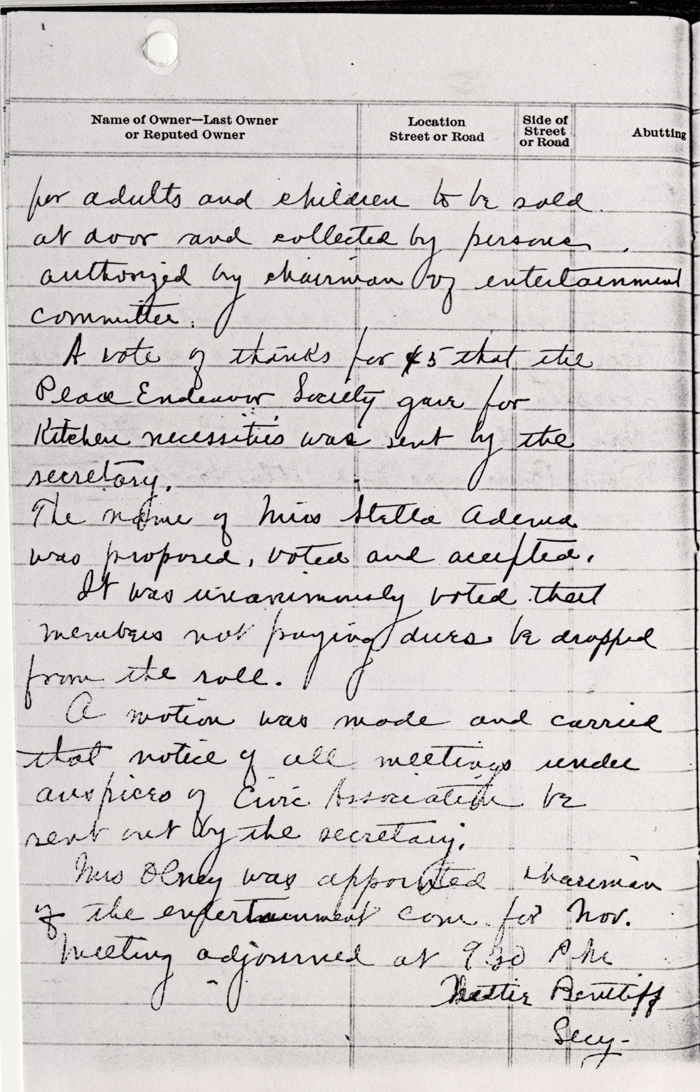 Name of Owner—Last Owner
or Reputed Owner
Location
Street or Road
Side of
Street
or Road
Abutting
for adults and children to be sold
at door and collected by persons
authorized by chairman of entertainment
committee.
A vote of thanks for $5 that the
Peace Endeavor Society gave for
Kitchen necessities was sent by the
secretary.
The name of Miss Stella
was proposed, voted and accepted.
It was unanimously voted that
members not paying dues be dropped
from the roll.
A motion was made and carried
that notice of all meetings under
auspices of Civic Association be
sent out by the secretary.
Mrs Olney was appointed chairman
of the entertainment com for Nov.
Meeting adjourned at 9.30 P.M
Secy-